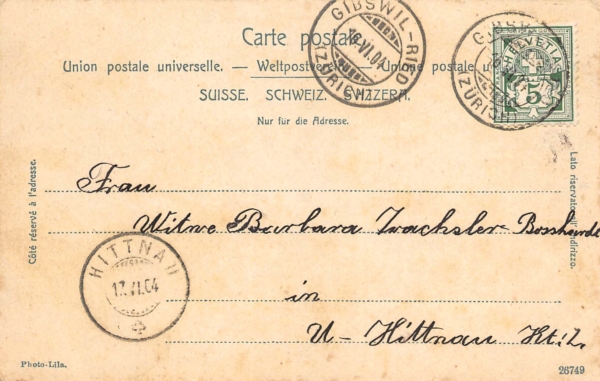 Carte postale
Union postale universelle. — Weltpostverein — Unione postale
SUISSE. SCHWEIZ. SVIZZERA.
Nur für die Adresse.
GIBSWIL-RIED
16.VI.04
(ZÜRICH)
HELVETIA
5
Côté réservé à l'adresse.
Lato riservato all'indirizzo.
Frau
Witwe Barbara Trachsler-Bosshardt
in
U-Hittnau Kt. Z.
HITTNAU
17.VI.04
Photo-Lila.
26749